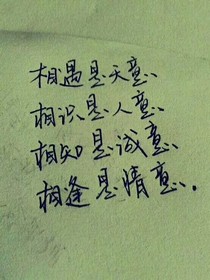 相遇是天意、
相识是人意、
相知是诚意、
相逢是情意.